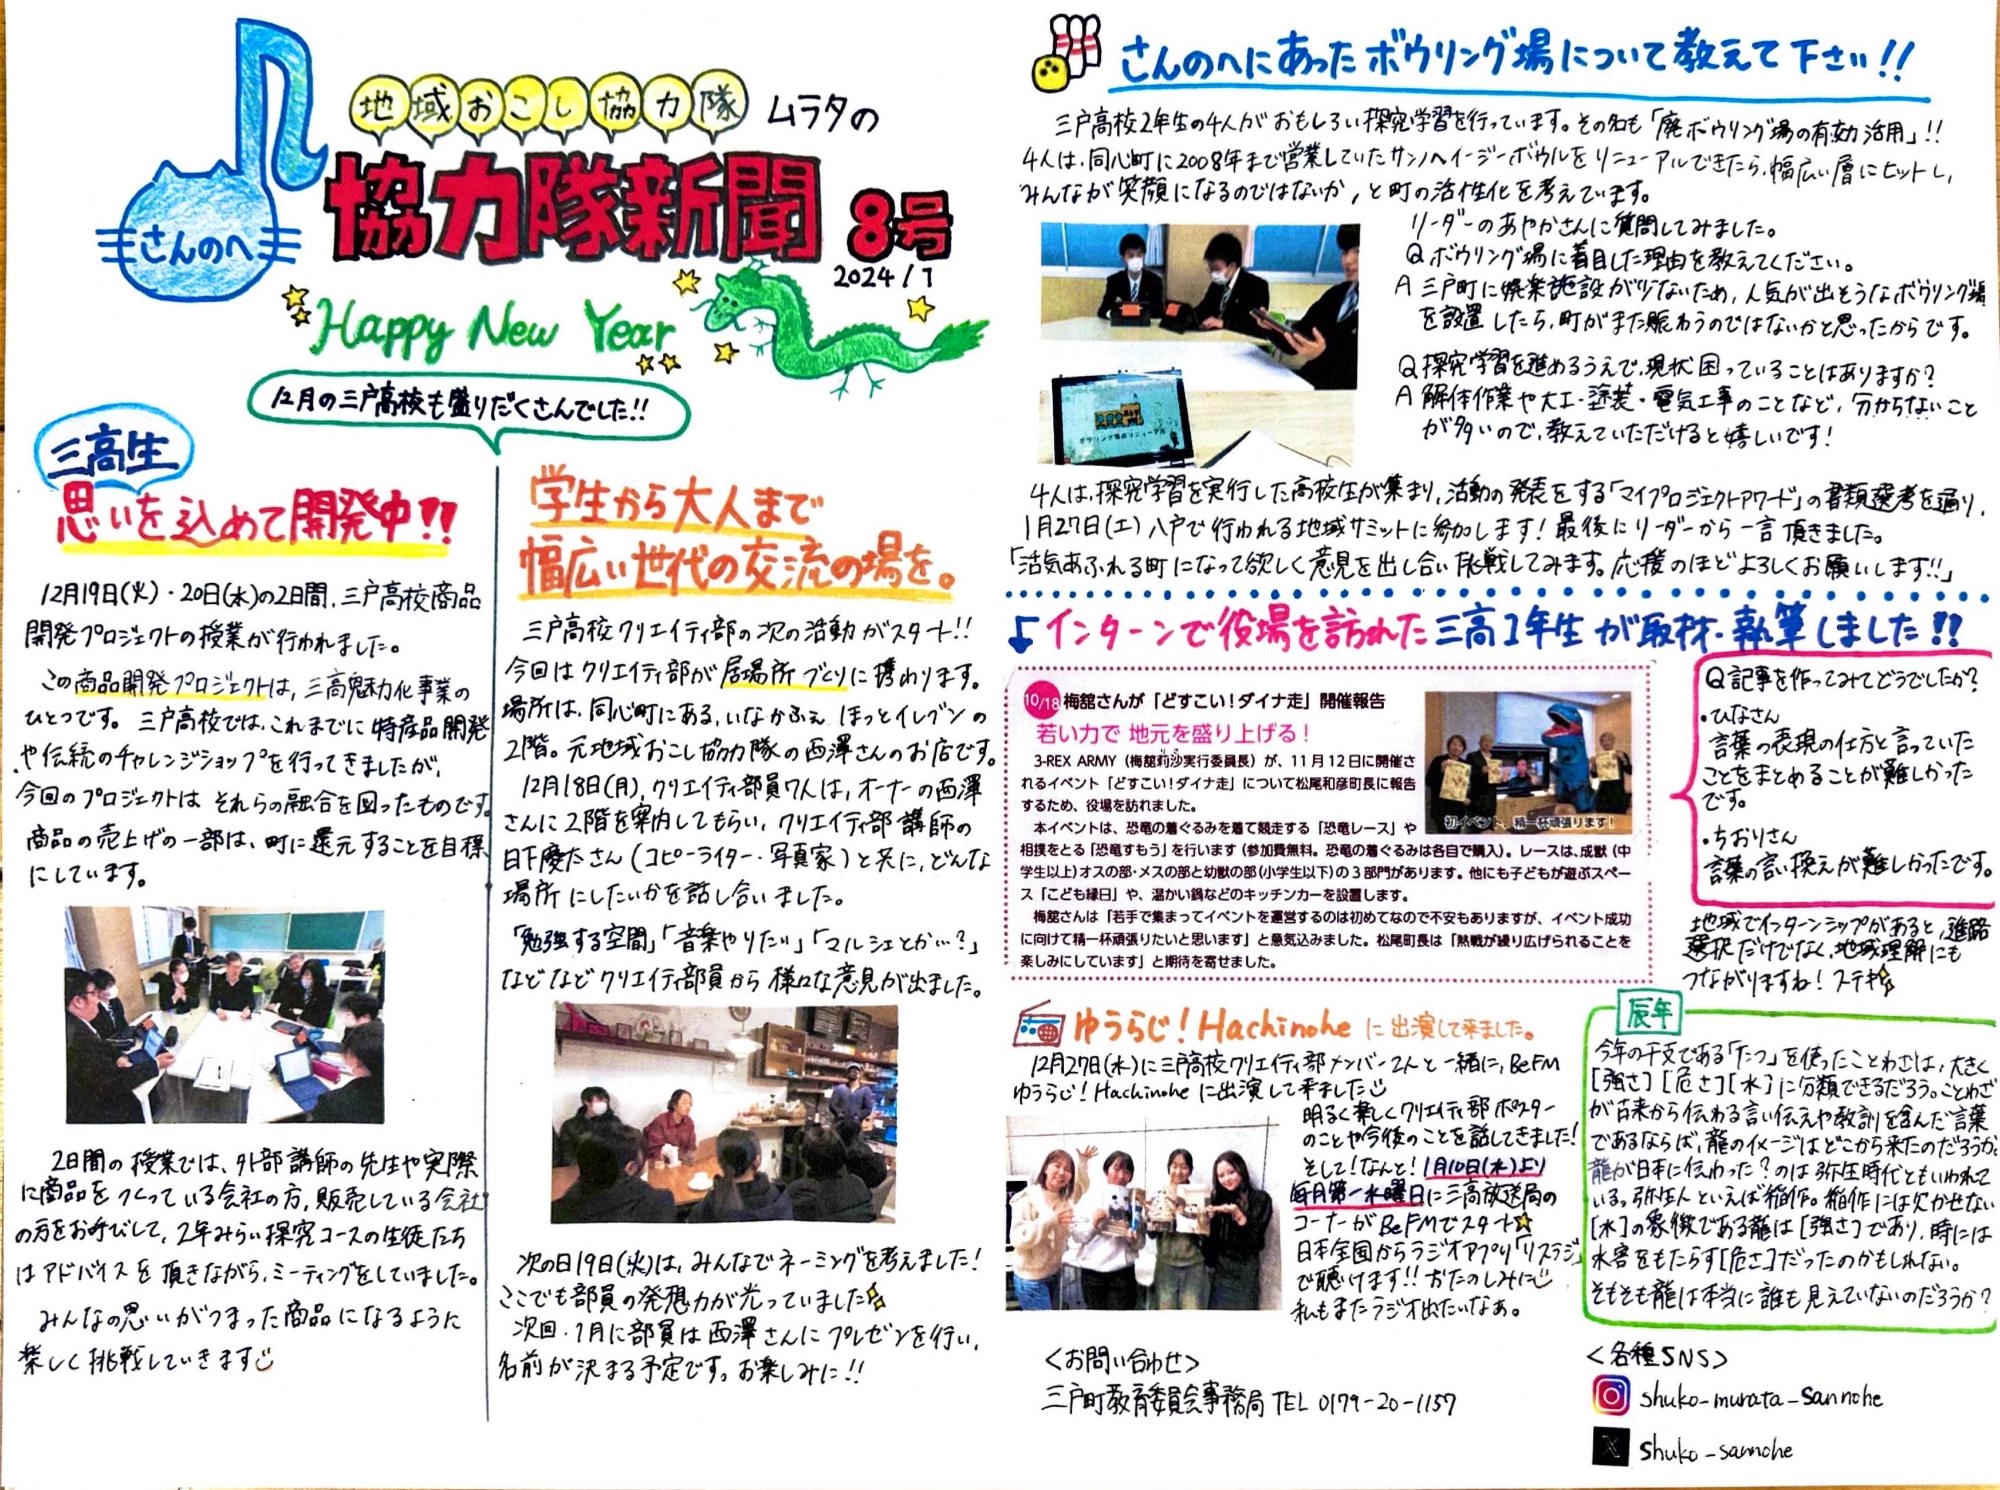 地域おこし協力隊 ムラタの
協力隊新聞 8号
さんのへ
2024/1
Happy New Year
12月の三戸高校も盛りだくさんでした!!
三高生
思いを込めて開発中!!
12月19日(火)・20日(水)の2日間、三戸高校商品
開発プロジェクトの授業が行われました。
この商品開発プロジェクトは、三高魅力化事業の
ひとつです。三戸高校では、これまでに特産品開発
や伝統のチャレンジショップを行ってきましたが、
今回のプロジェクトは それらの融合を図ったものです。
商品の売上げの一部は、町に還元することを目標
にしています。
2日間の授業では、外部講師の先生や実際
に商品をつくっている会社の方、販売している会社
の方をお呼びして、2年みらい探究コースの生徒たち
はアドバイスを頂きながら、ミーティングをしていました。
みんなの思いがつまった商品になるように
楽しく挑戦していきます
学生から大人まで
幅広い世代の交流の場を。
三戸高校クリエイティ部の次の活動がスタート!!
今回はクリエイティ部が居場所づくりに携わります。
場所は、同心町にある、いなかふぇ ほっとイレブンの
2階。元地域おこし協力隊の西澤さんのお店です。
12月18日(月)、クリエイティ部員7人は、オーナーの西澤
さんに2階を案内してもらい、クリエイティ部講師の
日下慶太さん(コピーライター・写真家)と共に、どんな
場所にしたいかを話し合いました。
「勉強する空間」「音楽やりたい」「マルシェとか…?」
などなどクリエイティ部員から様々な意見が出ました。
次の日19日(火)は、みんなでネーミングを考えました!
ここでも部員の発想力が光っていました
次回、1月に部員は西澤さんにプレゼンを行い、
名前が決まる予定です。お楽しみに!!
さんのへにあったボウリング場について教えて下さい!!
三戸高校2年生の4人がおもしろい探究学習を行っています。その名も「廃ボウリング場の有効活用」!!
4人は、同心町に2008年まで営業していたサンノヘイージーボウルをリニューアルできたら、幅広い層にヒットし、
みんなが笑顔になるのではないか、と町の活性化を考えています。
リーダーのあやかさんに質問してみました。
Q ボウリング場に着目した理由を教えてください。
A 三戸町に娯楽施設が少ないため、人気が出そうなボウリング場
を設置したら、町がまた賑わうのではないかと思ったからです。
Q 探究学習を進めるうえで、現状困っていることはありますか?
A 解体作業や大工・塗装・電気工事のことなど、分からないこと
が多いので、教えていただけると嬉しいです!
4人は、探究学習を実行した高校生が集まり、活動の発表をする「マイプロジェクトアワード」の書類選考を通り、
1月27日(土)八戸で行われる地域サミットに参加します!最後にリーダーから一言頂きました。
「活気あふれる町になって欲しく意見を出し合い挑戦してみます。応援のほどよろしくお願いします!!」
インターンで役場を訪れた三高1年生が取材・執筆しました!!
10/18 梅舘さんが「どすこい!ダイナ走」開催報告
若い力で 地元を盛り上げる!
3-REX ARMY(梅舘莉沙実行委員長)が、11月12日に開催さ
れるイベント「どすこい!ダイナ走」について松尾和彦町長に報告
するため、役場を訪れました。
本イベントは、恐竜の着ぐるみを着て競走する「恐竜レース」や
相撲をとる「恐竜すもう」を行います(参加費無料。恐竜の着ぐるみは各自で購入)。レースは、成獣(中
学生以上)オスの部・メスの部と幼獣の部(小学生以下)の3部門があります。他にも子どもが遊ぶスペー
ス「こども縁日」や、温かい鍋などのキッチンカーを設置します。
梅舘さんは「若手で集まってイベントを運営するのは初めてなので不安もありますが、イベント成功
に向けて精一杯頑張りたいと思います」と意気込みました。松尾町長は「熱戦が繰り広げられることを
楽しみにしています」と期待を寄せました。
初イベント、精一杯頑張ります!
Q 記事を作ってみてどうでしたか?
・ひなさん
言葉の表現の仕方と言っていた
ことをまとめることが難しかった
です。
・ちおりさん
言葉の言い換えが難しかったです。
地域でインターンシップがあると、進路
選択だけでなく、地域理解にも
つながりますね!ステキ
ゆうらじ!Hachinoheに出演して来ました。
12月27日(水)に三戸高校クリエイティ部メンバー2人と一緒に、BeFM
ゆうらじ!Hachinoheに出演して来ました
明るく楽しくクリエイティ部ポスター
のことや今後のことを話してきました!
そして!なんと!1月10日(水)より
毎月第一水曜日に三高放送局の
コーナーがBeFMでスタート
日本全国からラジオアプリ「リスラジ」
で聴けます!!おたのしみに
私もまたラジオ出たいなぁ。
辰年
今年の干支である「たつ」を使ったことわざは、大きく
[強さ][危さ][水]に分類できるだろう。ことわざ
が古来から伝わる言い伝えや教訓を含んだ言葉
であるならば、龍のイメージはどこから来たのだろうか。
龍が日本に伝わった?のは弥生時代ともいわれて
いる。弥生人といえば稲作。稲作には欠かせない
[水]の象徴である龍は[強さ]であり、時には
水害をもたらす[危さ]だったのかもしれない。
そもそも龍は本当に誰も見えていないのだろうか?
<お問い合わせ>
三戸町教育委員会事務局 TEL 0179-20-1157
<各種SNS>
shuko-murata-sannohe
shuko-sannohe